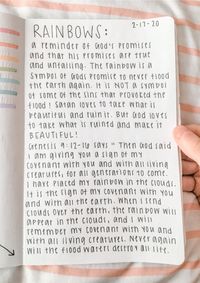 2-17-20
RAINBOWS:
a reminder of God's promises
and that his promises are true
and unfailing. The rainbow is a
symbol of God's promise to never flood
the earth again. It is NOT a symbol
of some of the sins that provoked the
flood! Satan loves to take what is
beautiful and ruin it. But God loves
to take what is ruined and make it
BEAUTIFUL!
Genesis 9:12-16 says "Then God said
I am giving you a sign of my
covenant with you and with all living
creatures, for all generations to come.
I have placed my rainbow in the clouds.
It is the sign of my covenant with you
and with all the earth. When I send
clouds over the earth, the rainbow will
appear in the clouds, and I will
remember my covenant with you and
with all living creatures. Never again
will the flood waters destroy all life.